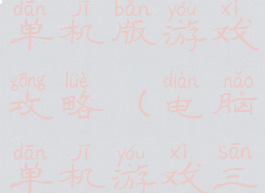 dān jī bǎn yóu xì
单机版游戏
gōng lüè diàn nǎo
攻略（电脑
dān jī yóu xì sān
单机游戏三